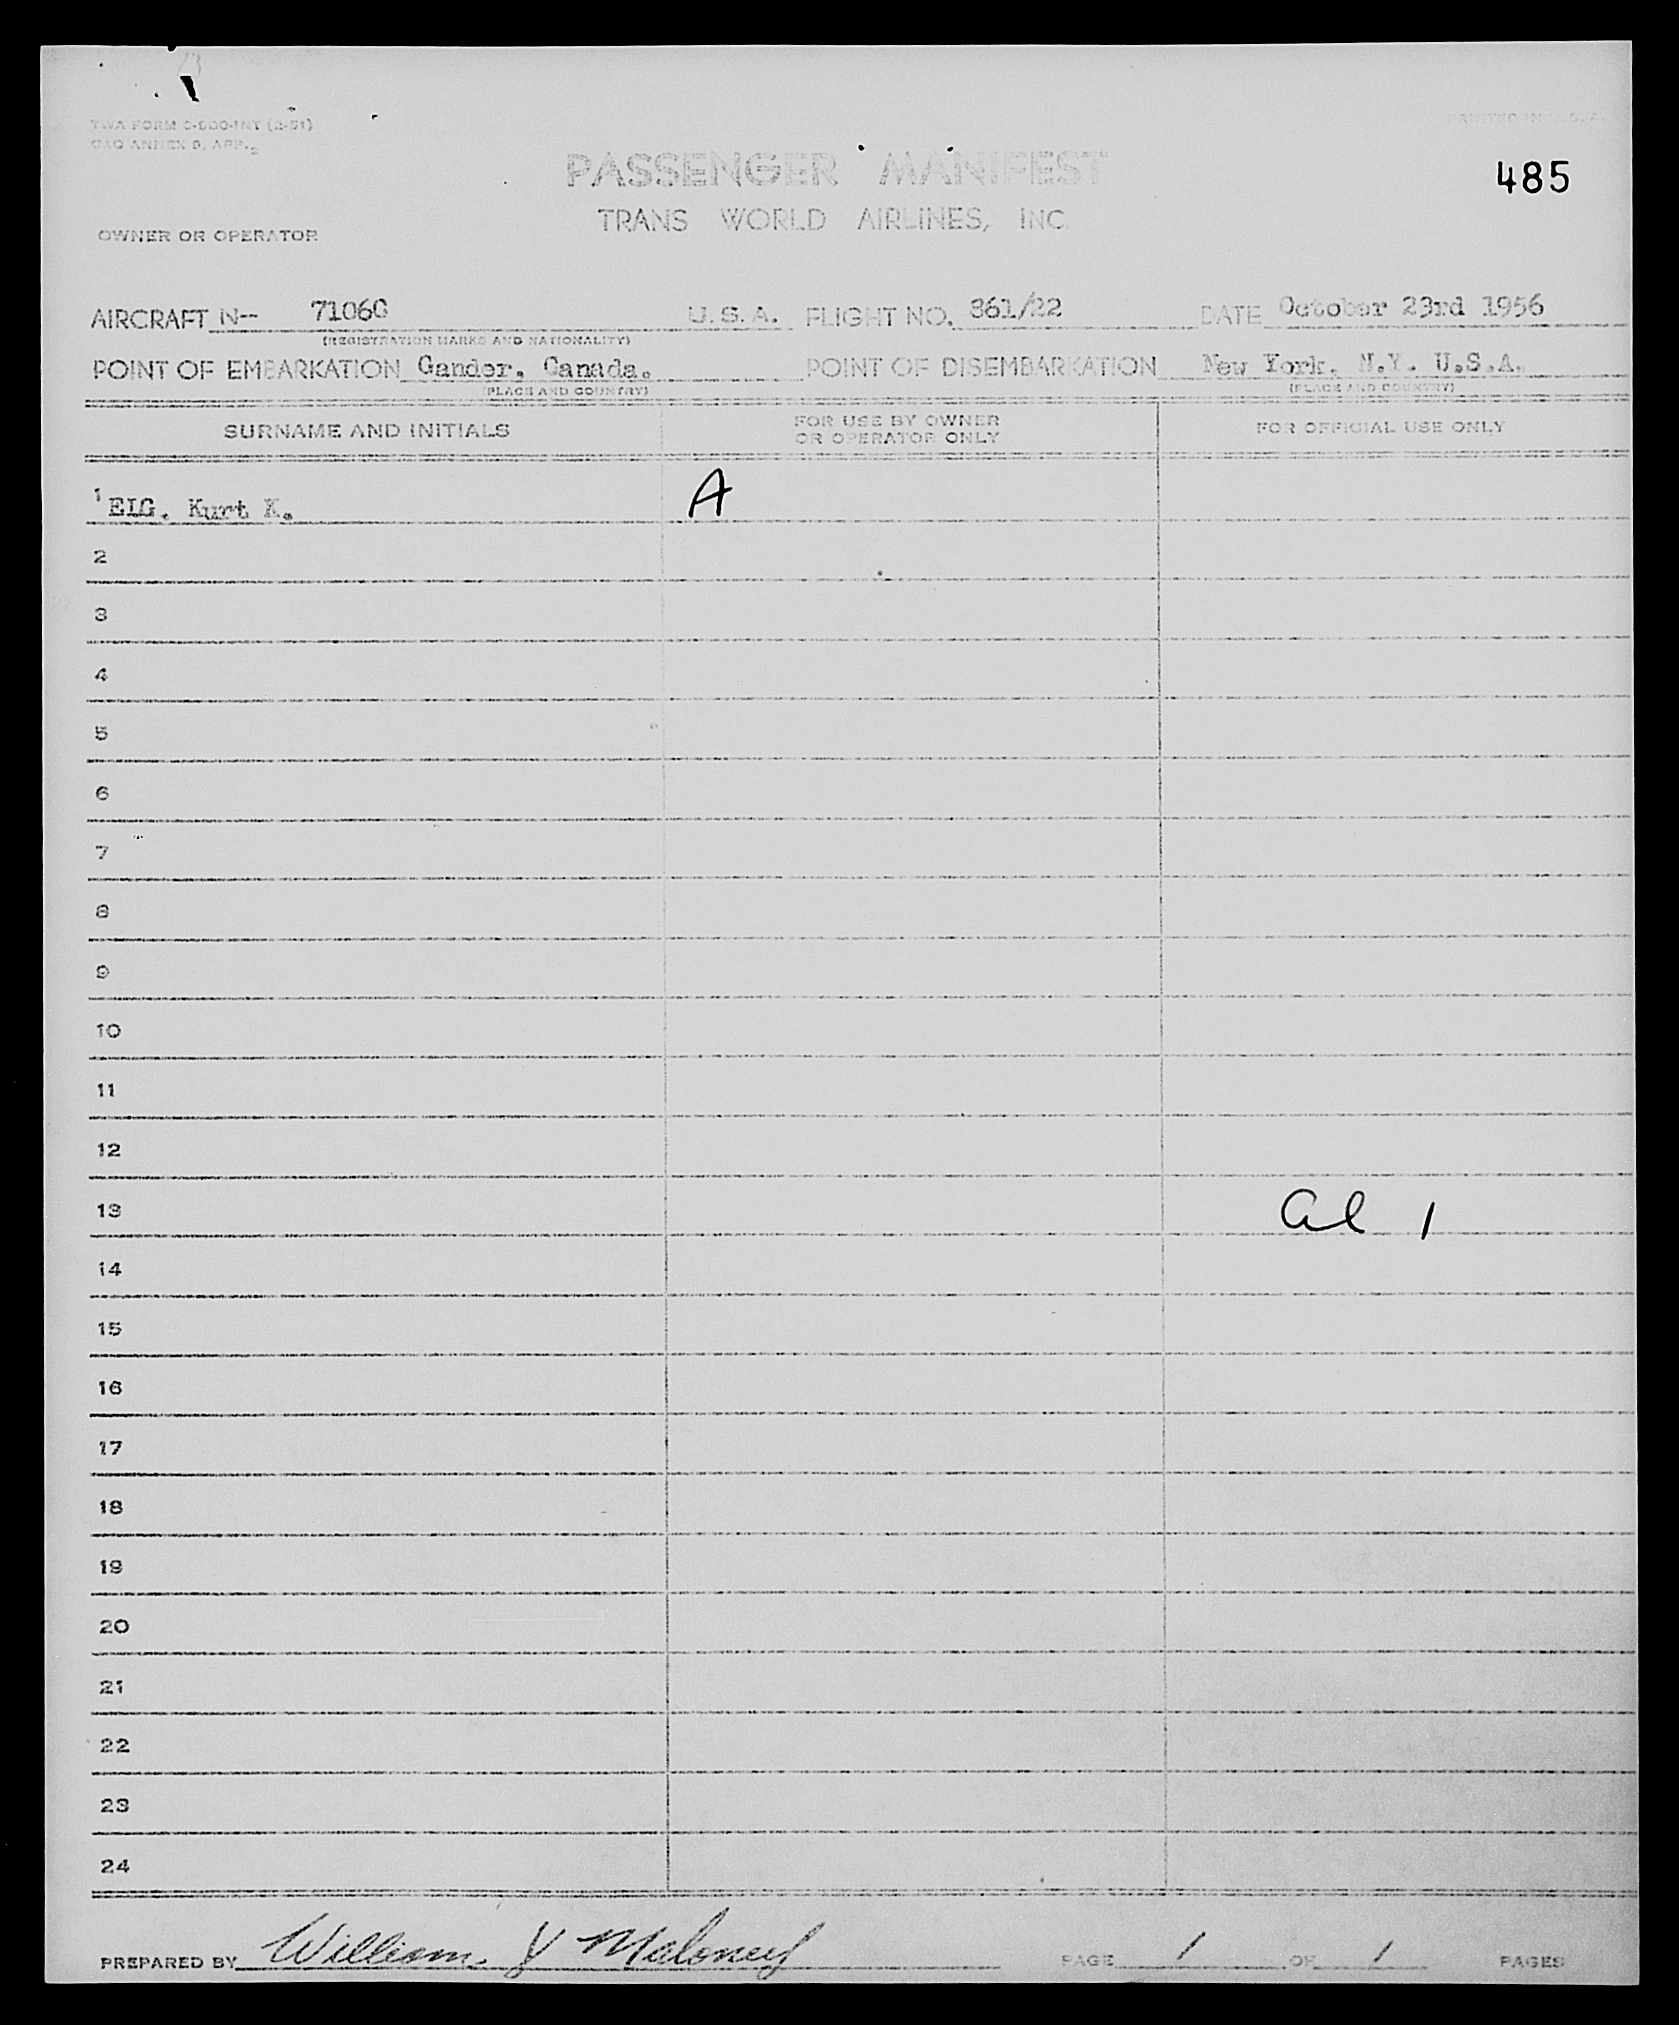 TWA FORM O-500-INT (2-51)
PRINTED IN U.S.A.
CAO ANNEX 9, APP. 2
PASSENGER MANIFEST
485
TRANS WORLD AIRLINES, INC
OWNER OR OPERATOR
AIRCRAFT N-- 7106C U.S.A. FLIGHT NO. 861/22 DATE October 23rd 1956
(REGISTRATION MARKS AND NATIONALITY)
POINT OF EMBARKATION Gander. Canada. POINT OF DISEMBARKATION New York. N.Y. U.S.A.
(PLACE AND COUNTRY) (PLACE AND COUNTRY)
SURNAME AND INITIALS FOR USE BY OWNER OR OPERATOR ONLY FOR OFFICIAL USE ONLY
1 EIG. Kurt K. A
2
3
4
5
6
7
8
9
10
11
12
13 al 1
14
15
16
17
18
19
20
21
22
23
24
PREPARED BY William J Maloney PAGE 1 OF 1 PAGES